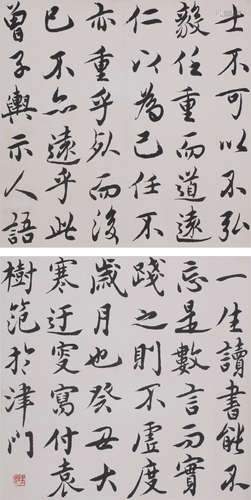 士不可以不弘
毅任重而道遠
仁以為己任不
亦重乎死而後
已不亦遠乎此
曾子輿示人語
一生讀書能不
忘是數言而實
踐之則不虛度
歲月也癸丑大
寒迂叟寫付袁
樹範於津門